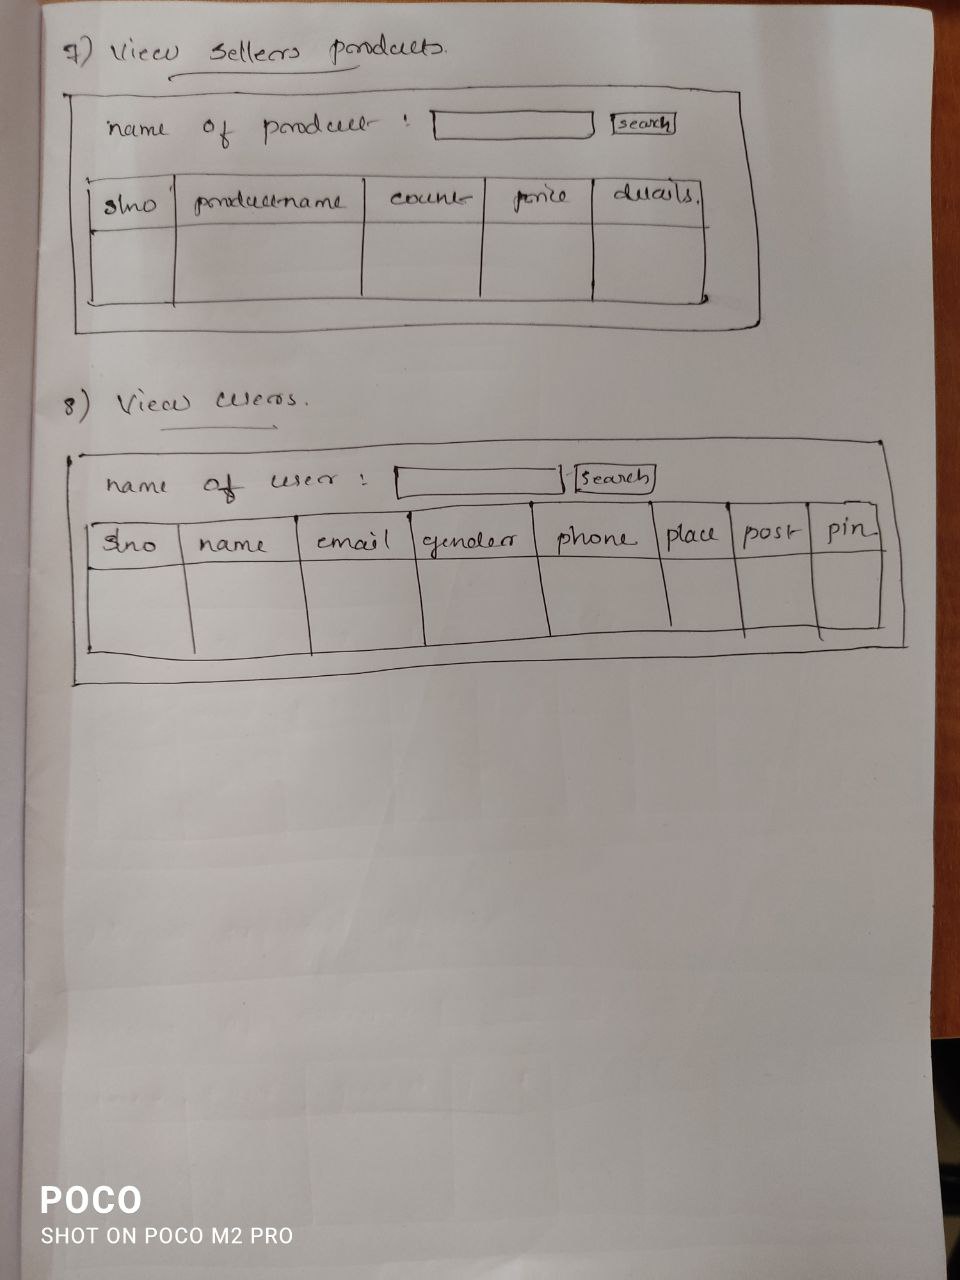 7) View Sellers products.
name of product : search
slno productname count price details.
8) View users.
name of user : search
slno name email gender phone place post pin
POCO
SHOT ON POCO M2 PRO